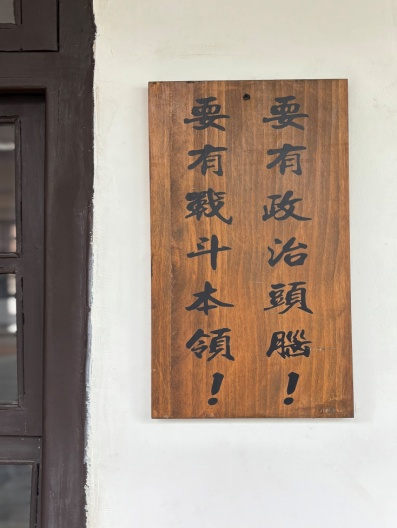 要有政治頭腦！
要有戰斗本領！